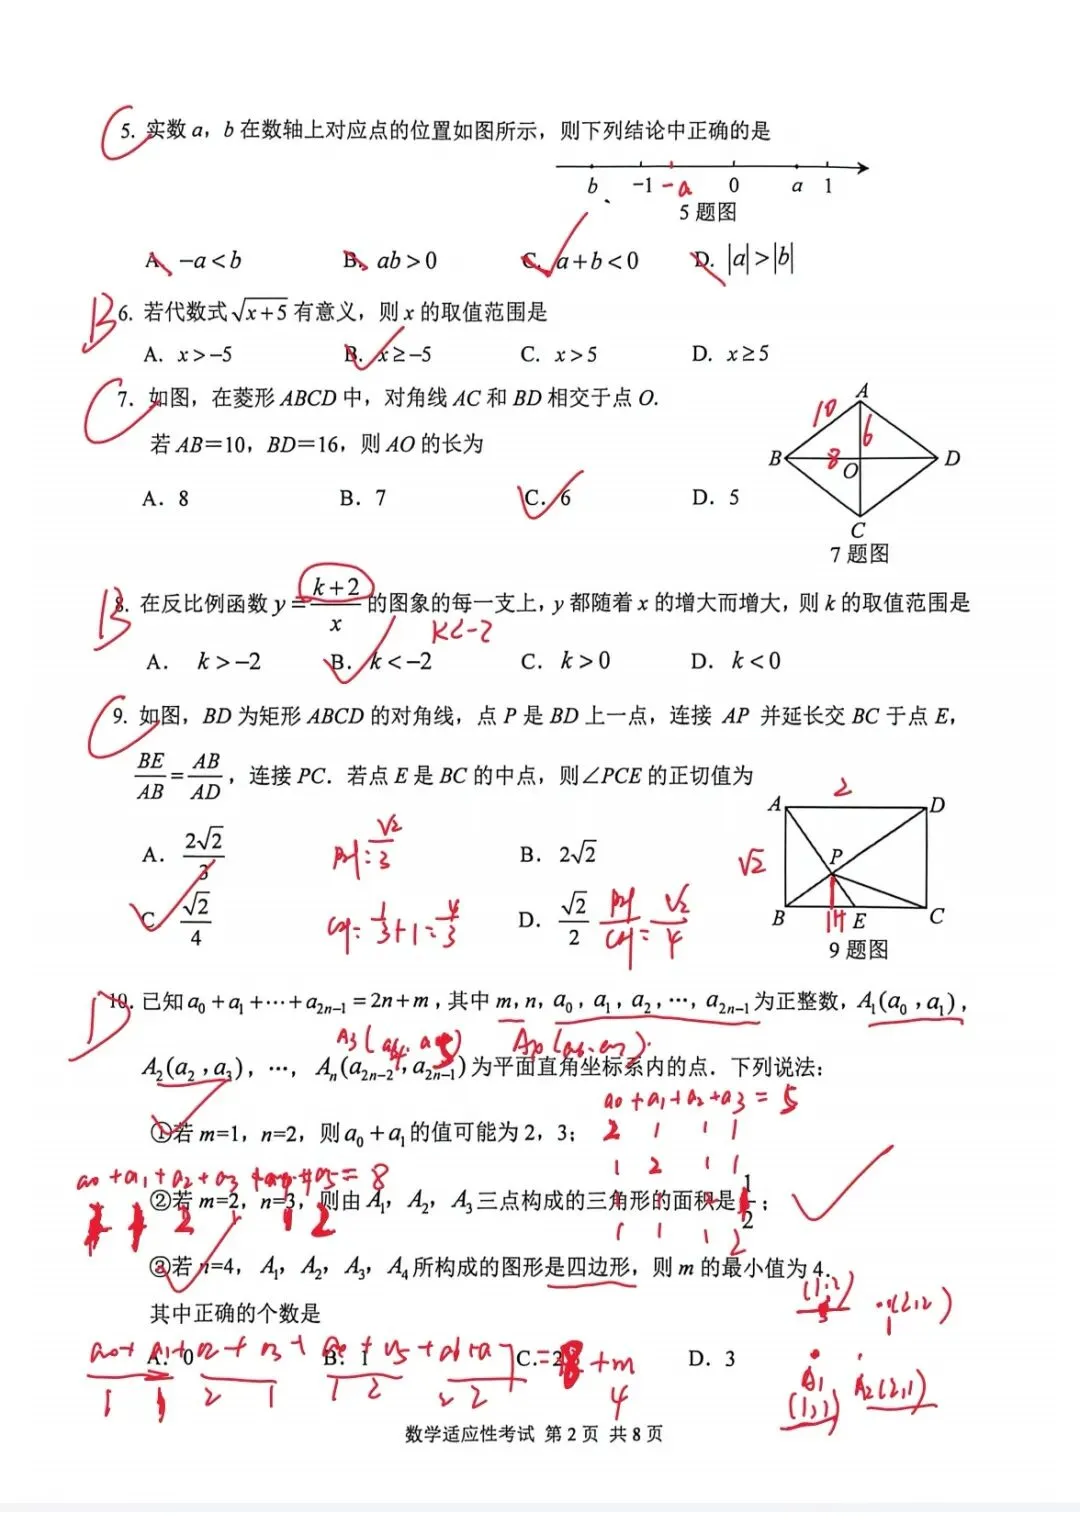 5. 实数 a，b 在数轴上对应点的位置如图所示，则下列结论中正确的是
b -1 -a 0 a 1
5 题图
A. -a<b B. ab>0 C. a+b<0 D. |a|>|b|
B 6. 若代数式 √(x+5) 有意义，则 x 的取值范围是
A. x>-5 B. x≥-5 C. x>5 D. x≥5
C 7. 如图，在菱形 ABCD 中，对角线 AC 和 BD 相交于点 O.
若 AB＝10，BD＝16，则 AO 的长为
A. 8 B. 7 C. 6 D. 5
A
10 6
B 8 O D
C
7 题图
B 8. 在反比例函数 y=(k+2)/x 的图象的每一支上，y 都随着 x 的增大而增大，则 k 的取值范围是
K<-2
A. k>-2 B. k<-2 C. k>0 D. k<0
C 9. 如图，BD 为矩形 ABCD 的对角线，点 P 是 BD 上一点，连接 AP 并延长交 BC 于点 E，
BE/AB=AB/AD，连接 PC．若点 E 是 BC 的中点，则∠PCE 的正切值为
A. 2√2/3 B. 2√2
PH=√2/3
C. √2/4 D. √2/2
CH=1/3+1=4/3 PH/CH=√2/4
2
A D
√2 P
B H E C
9 题图
D 10. 已知 a₀+a₁+⋯+a₂ₙ₋₁=2n+m，其中 m, n, a₀，a₁，a₂，⋯，a₂ₙ₋₁ 为正整数，A₁(a₀，a₁)，
A₂(a₂，a₃)，⋯，Aₙ(a₂ₙ₋₂，a₂ₙ₋₁) 为平面直角坐标系内的点．下列说法：
a₀+a₁+a₂+a₃=5
①若 m=1，n=2，则 a₀+a₁ 的值可能为 2，3；
2 1 1 1
1 2 1 1
②若 m=2，n=3，则由 A₁，A₂，A₃ 三点构成的三角形的面积是 1/2；
1 1 1 2
③若 n=4，A₁，A₂，A₃，A₄ 所构成的图形是四边形，则 m 的最小值为 4.
其中正确的个数是
A. 0 B. 1 D. 3
+m
1 1 2 1 1 2 2 2 4
(1,2) (2,2)
A₁ (1,1) A₂(2,1)
数学适应性考试 第 2 页 共 8 页